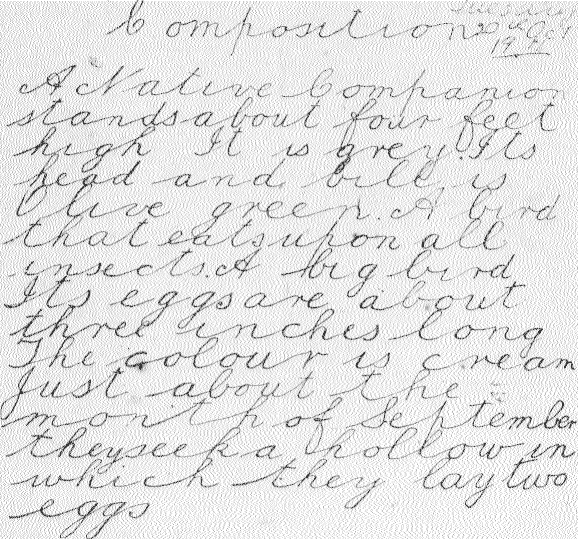 Tuesday
Composition 20th Oct
19
A Native Companion
stands about four feet
high It is grey. Its
head and bill is
Olive green. A bird
that eats upon all
insects. A big bird
Its eggs are about
three inches long
The colour is cream
Just about the
month of September
they seek a hollow in
which they lay two
eggs